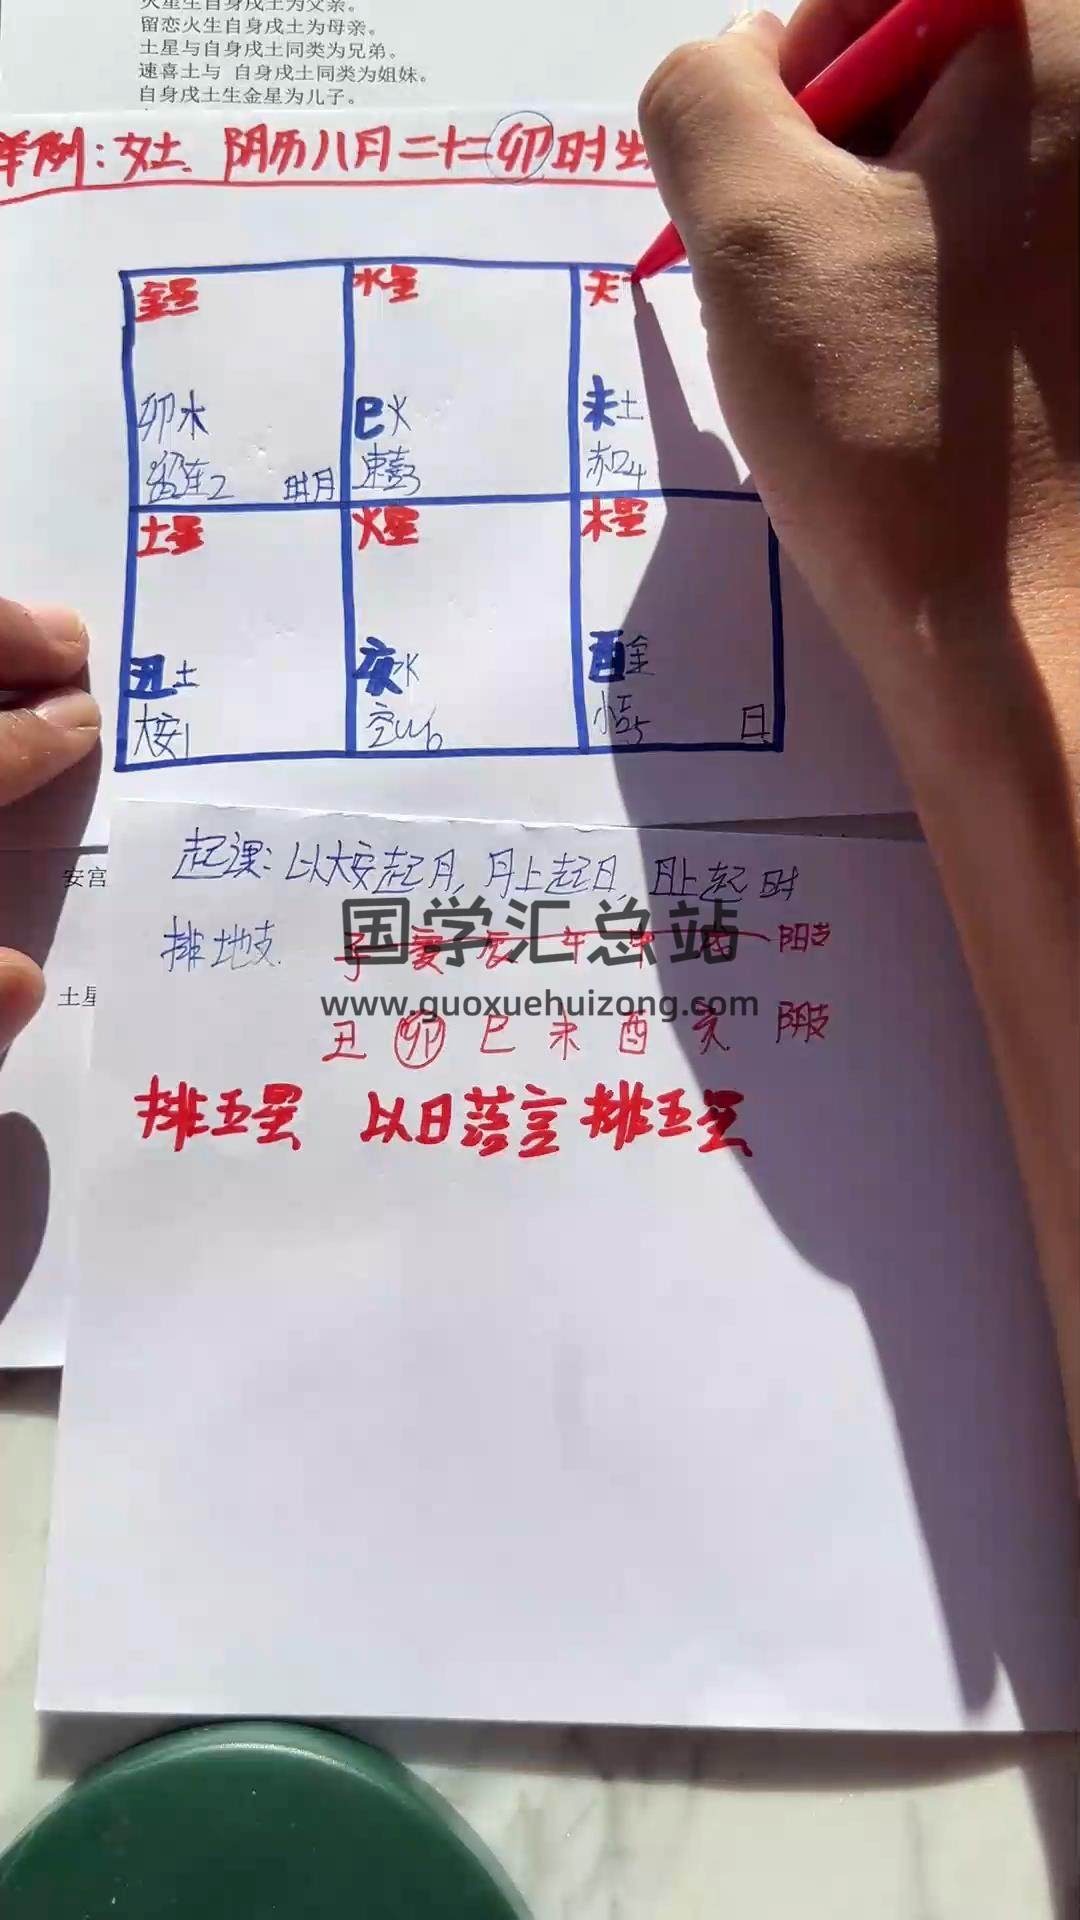 火星生自身戌土为父亲。
留恋火生自身戌土为母亲。
土星与自身戌土同类为兄弟。
速喜土与 自身戌土同类为姐妹。
自身戌土生金星为儿子。
举例:女士、阴历八月二十二卯时生
金星 水星 天
卯水 巳火 未土
留连2 时月 速喜3 赤口4
土星 火星 木星
丑土 亥水 酉金
大安1 空亡6 小吉5 日
起课:以大安起月,月上起日,日上起时
安宫
排地支 子 寅 辰 午 申 戌 阳支
国学汇总站
土星
www.guoxuehuizong.com
丑 卯 巳 未 酉 亥 阴支
排五星 以日落宫排五星